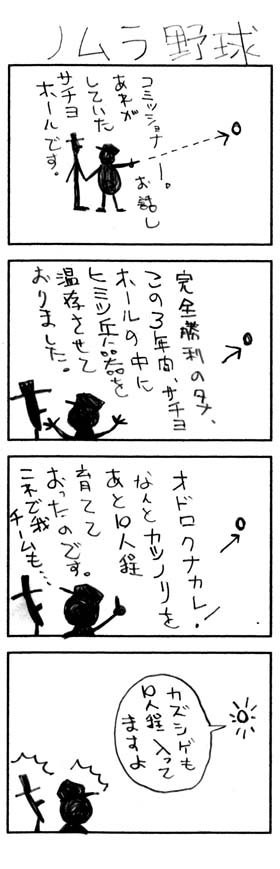 ノムラ野球
コミッショナー。
お話し
あれが
していた
サチヨ
ホールです。
完全勝利のタメ、
この3年間、サチヨ
ホールの中に
ヒミツ兵器を
温存させて
おりました。
オドロクナカレ!
なんとカツノリを
あと10人程
育てて
おったのです。
これで我
チームも…
カズシゲも
10人程入って
ますよ